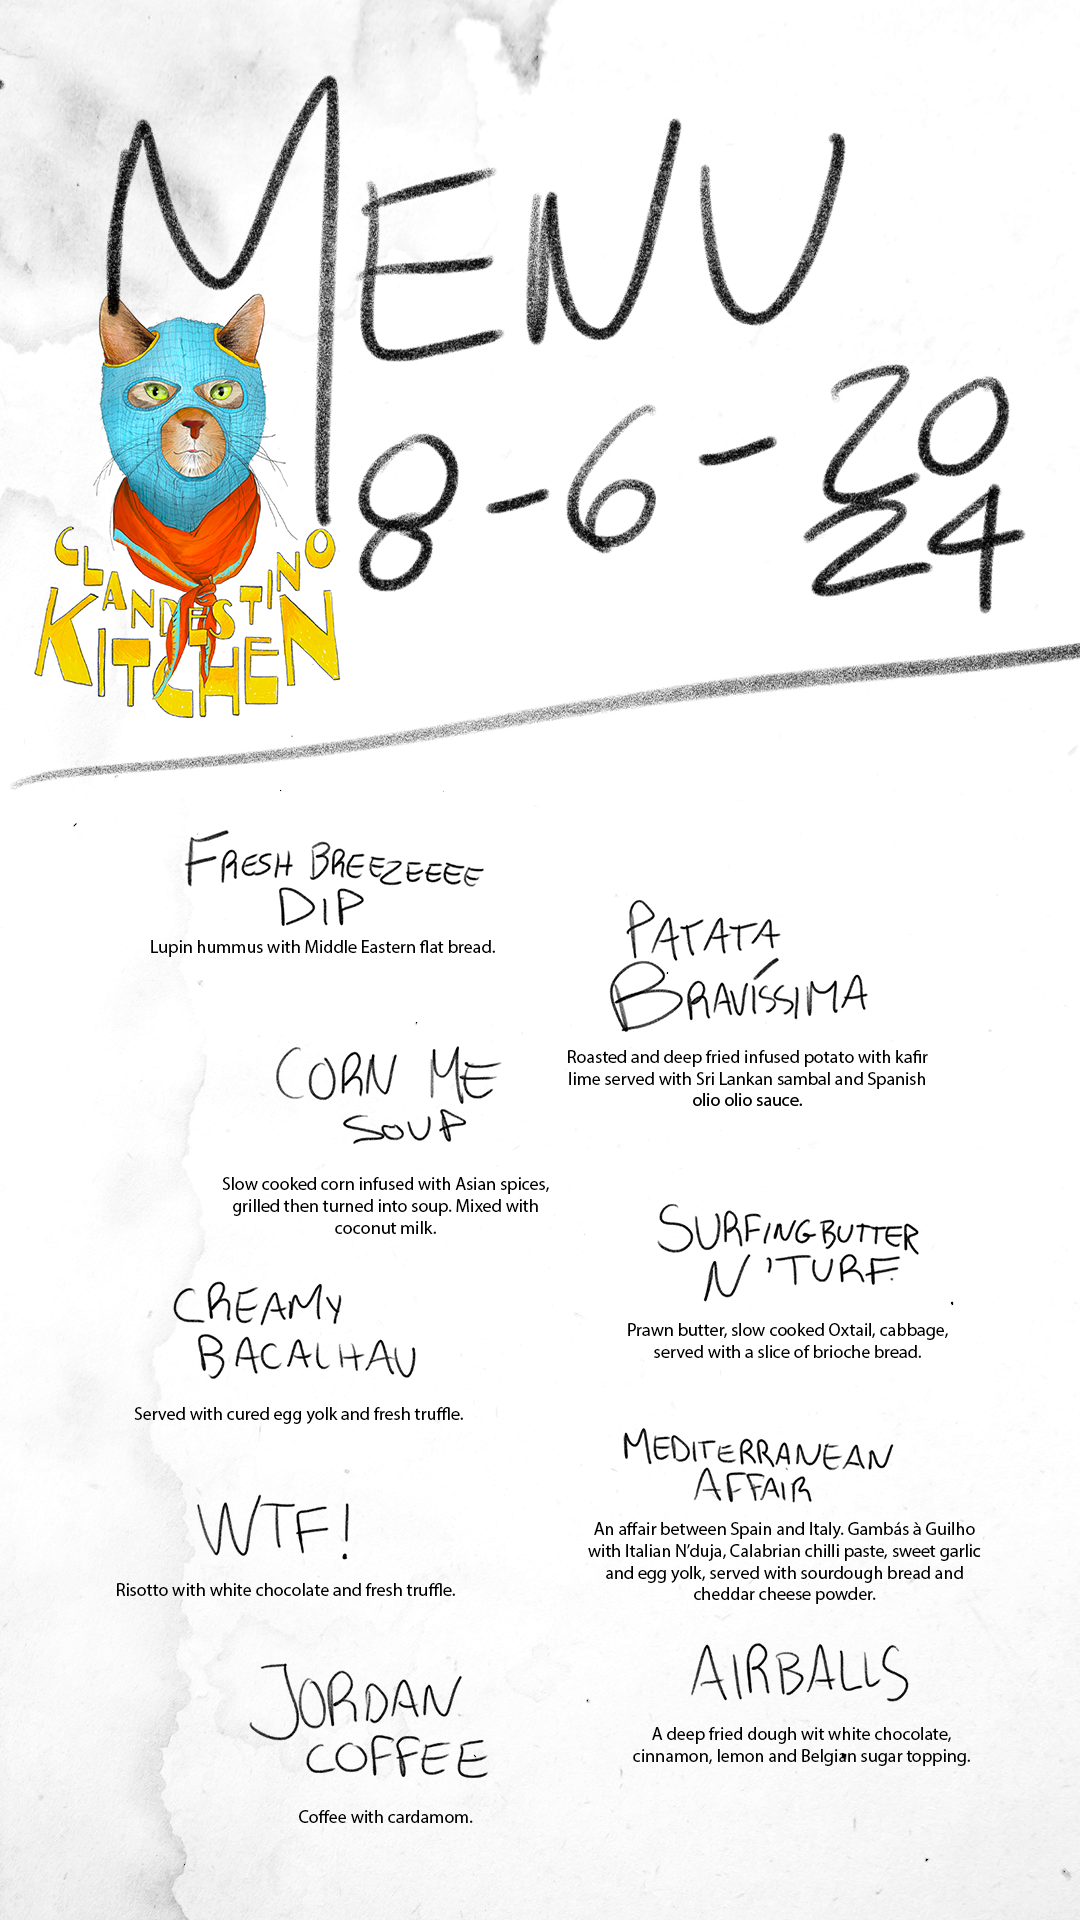 MENU
8-6-2024
CLANDESTINO
KITCHEN
FRESH BREEZEEEE
DIP
Lupin hummus with Middle Eastern flat bread.
PATATA
BRAVÍSSIMA
Roasted and deep fried infused potato with kafir
lime served with Sri Lankan sambal and Spanish
olio olio sauce.
CORN ME
SOUP
Slow cooked corn infused with Asian spices,
grilled then turned into soup. Mixed with
coconut milk.
SURFINGBUTTER
N'TURF
Prawn butter, slow cooked Oxtail, cabbage,
served with a slice of brioche bread.
CREAMY
BACALHAU
Served with cured egg yolk and fresh truffle.
MEDITERRANEAN
AFFAIR
An affair between Spain and Italy. Gambás à Guilho
with Italian N'duja, Calabrian chilli paste, sweet garlic
and egg yolk, served with sourdough bread and
cheddar cheese powder.
WTF!
Risotto with white chocolate and fresh truffle.
AIRBALLS
A deep fried dough wit white chocolate,
cinnamon, lemon and Belgian sugar topping.
JORDAN
COFFEE
Coffee with cardamom.